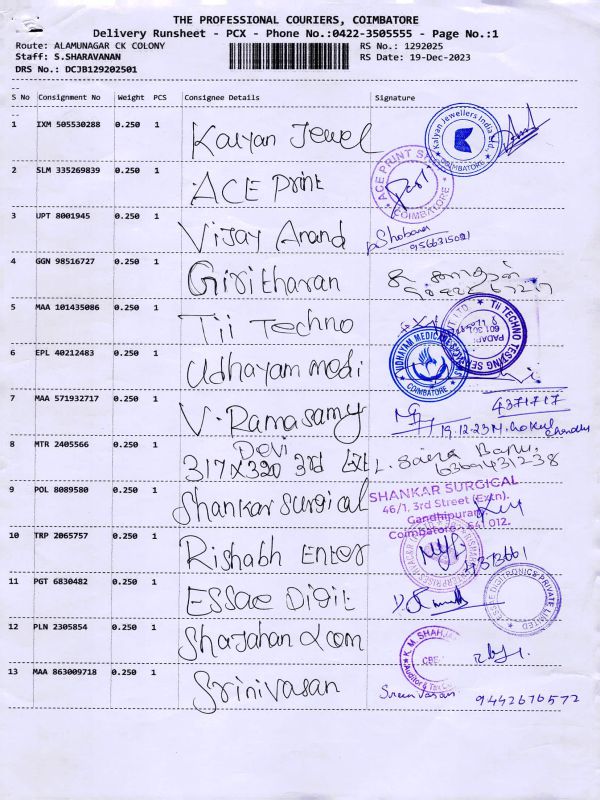 THE PROFESSIONAL COURIERS, COIMBATORE
Delivery Runsheet - PCX - Phone No.:0422-3505555 - Page No.:1
Route: ALAMUNAGAR CK COLONY RS No.: 1292025
Staff: S.SHARAVANAN RS Date: 19-Dec-2023
DRS No.: DCJB129202501
S No Consignment No Weight PCS Consignee Details Signature
1 IXM 505530288 0.250 1 Kalyan Jewel Kalyan Jewellers India COIMBATORE
2 SLM 335269839 0.250 1 ACE Print ACE PRINT COIMBATORE
3 UPT 8001945 0.250 1 Vijay Anand Shobana
9566315021
4 GGN 98516727 0.250 1 Giritharan
5 MAA 101435086 0.250 1 Tii Techno Tii TECHNO TESTING
6 EPL 40212483 0.250 1 Udhayam medi COIMBATORE
7 MAA 571932717 0.250 1 V. Ramasamy 4371717
19.12.23
8 MTR 2405566 0.250 1 Devi
317x320 3rd Ext
9 POL 8089580 0.250 1 Shankar Surgical SHANKAR SURGICAL
46/1, 3rd Street (Extn).
Gandhipuram,
Coimbatore - 641 012.
10 TRP 2065757 0.250 1 Rishabh Enter
11 PGT 6830482 0.250 1 ESSae Digit DIGITRONICS PRIVATE LIMITED
12 PLN 2305854 0.250 1 Shajahan & com K. M. SHAHJA
13 MAA 863009718 0.250 1 Srinivasan Sreenivasan 9442676572